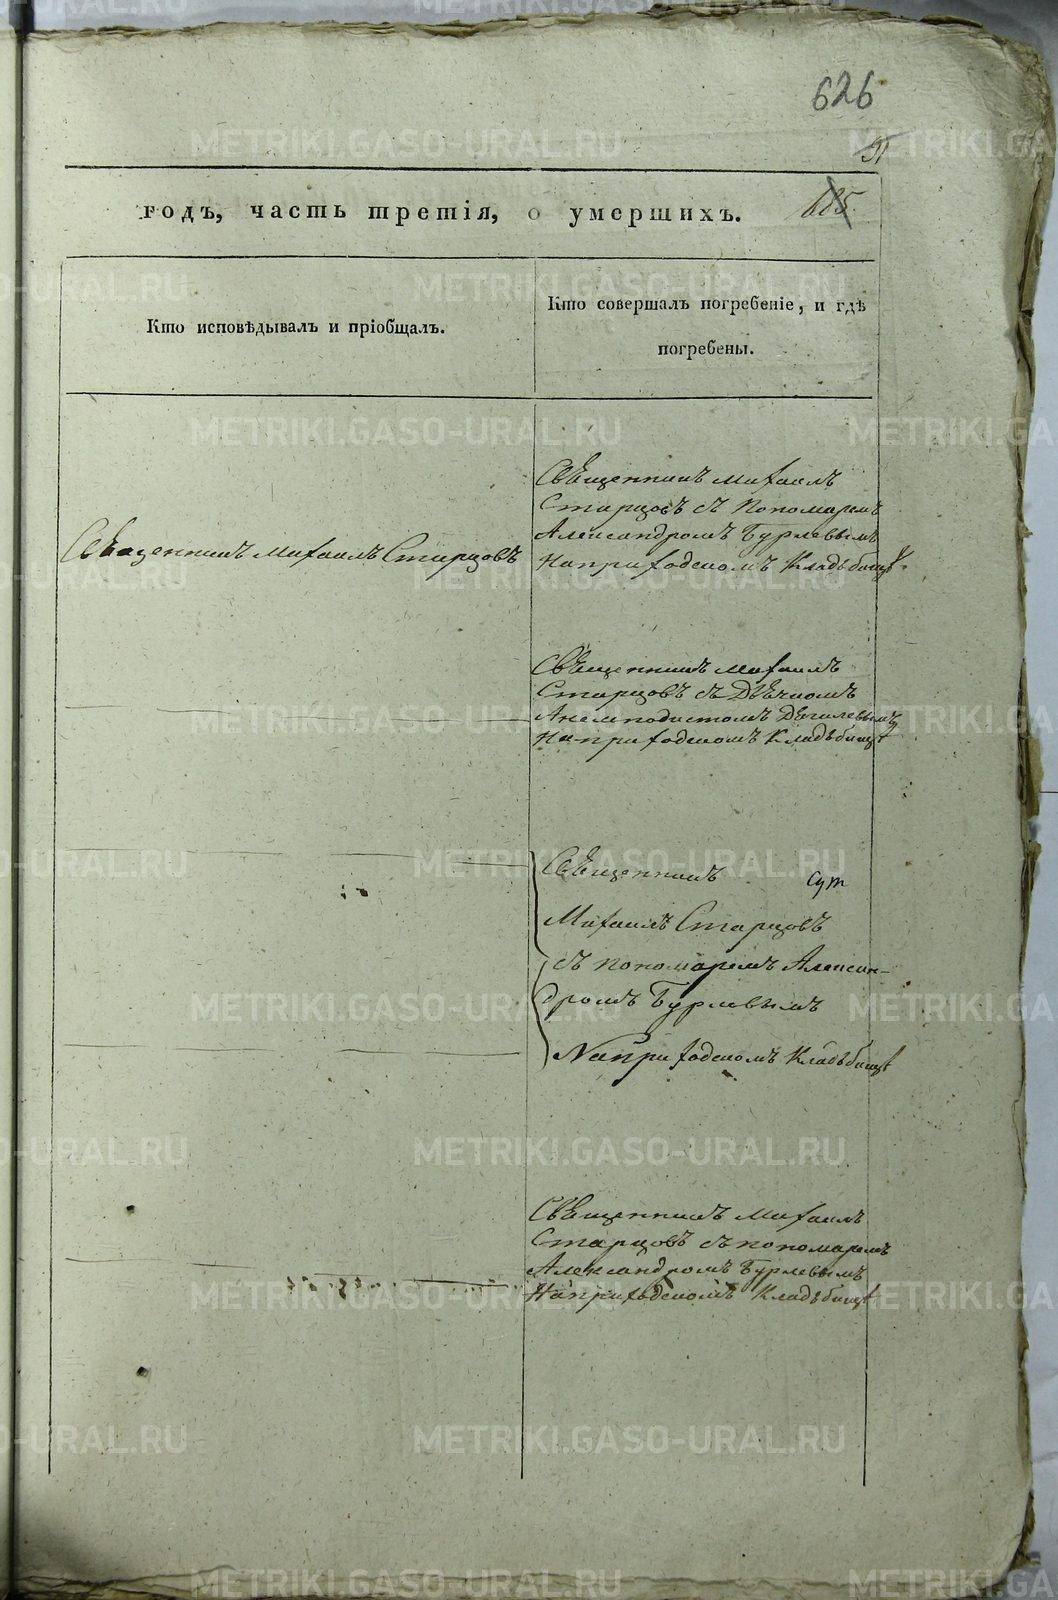 626
91
годъ, часть третія, о умершихъ.
685
Кто исповѣдывалъ и пріобщалъ.
Кто совершалъ погребеніе, и гдѣ
погребены.
Священникъ Михаилъ
Старцовъ съ Пономаремъ
Александромъ Бурлевымъ
На приходскомъ Кладѣбищѣ
Священникъ Михаилъ Старцовъ
Священникъ Михаилъ
Старцовъ съ Дьячкомъ
Анемподистомъ
На приходскомъ Кладѣбищѣ
Священникъ
Михаилъ Старцовъ
съ пономаремъ Алексан-
дромъ Бурлевымъ
На приходскомъ Кладѣбищѣ
Священникъ Михаилъ
Старцовъ съ пономаремъ
Александромъ Бурлевымъ
На приходскомъ Кладѣбищѣ
METRIKI.GASO-URAL.RU